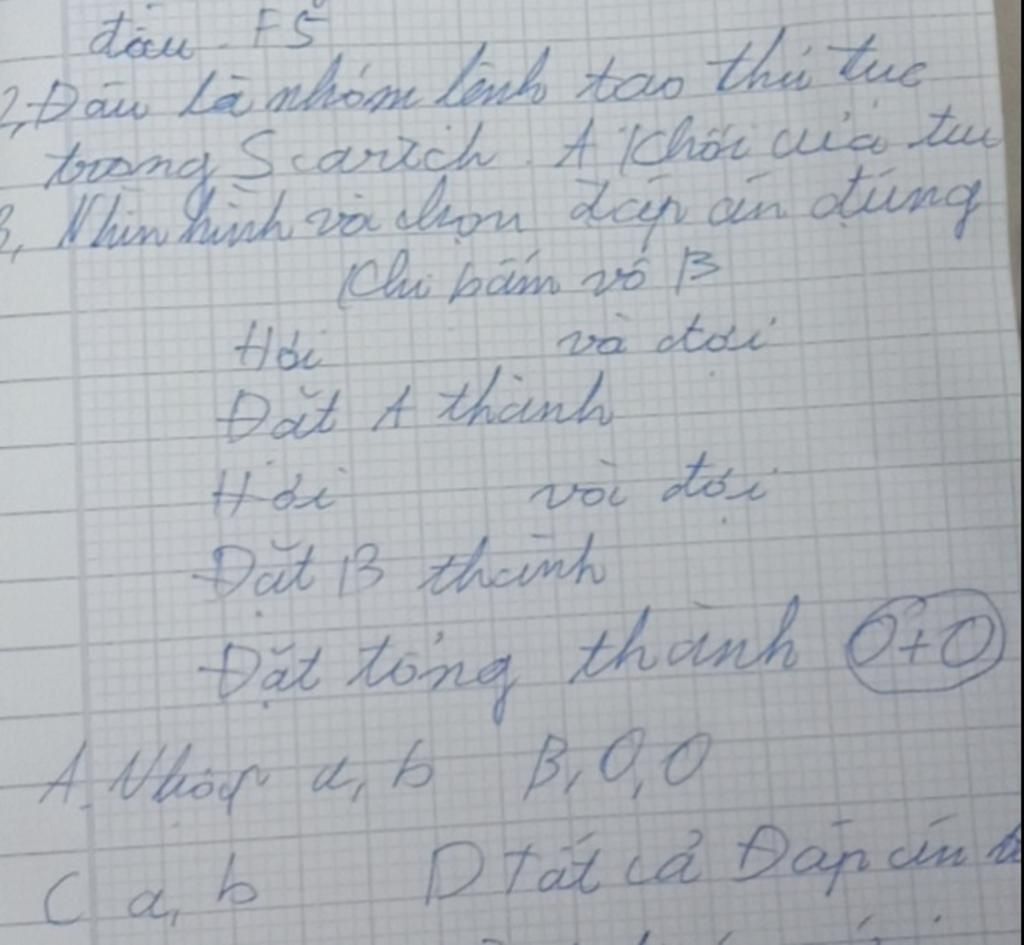 đâu F5
2, Đâu là nhóm lệnh tạo thủ tục
trong Scarich. A Khối của tui
3, Nhìn hình và chọn đáp án đúng
Khi bấm vố B
Hỏi và đợi
Đặt A thành
Hỏi và đợi
Đặt B thành
Đặt tổng thành O+O
A. Nhập a, b B, O, O
C a, b D Tất cả Đáp án